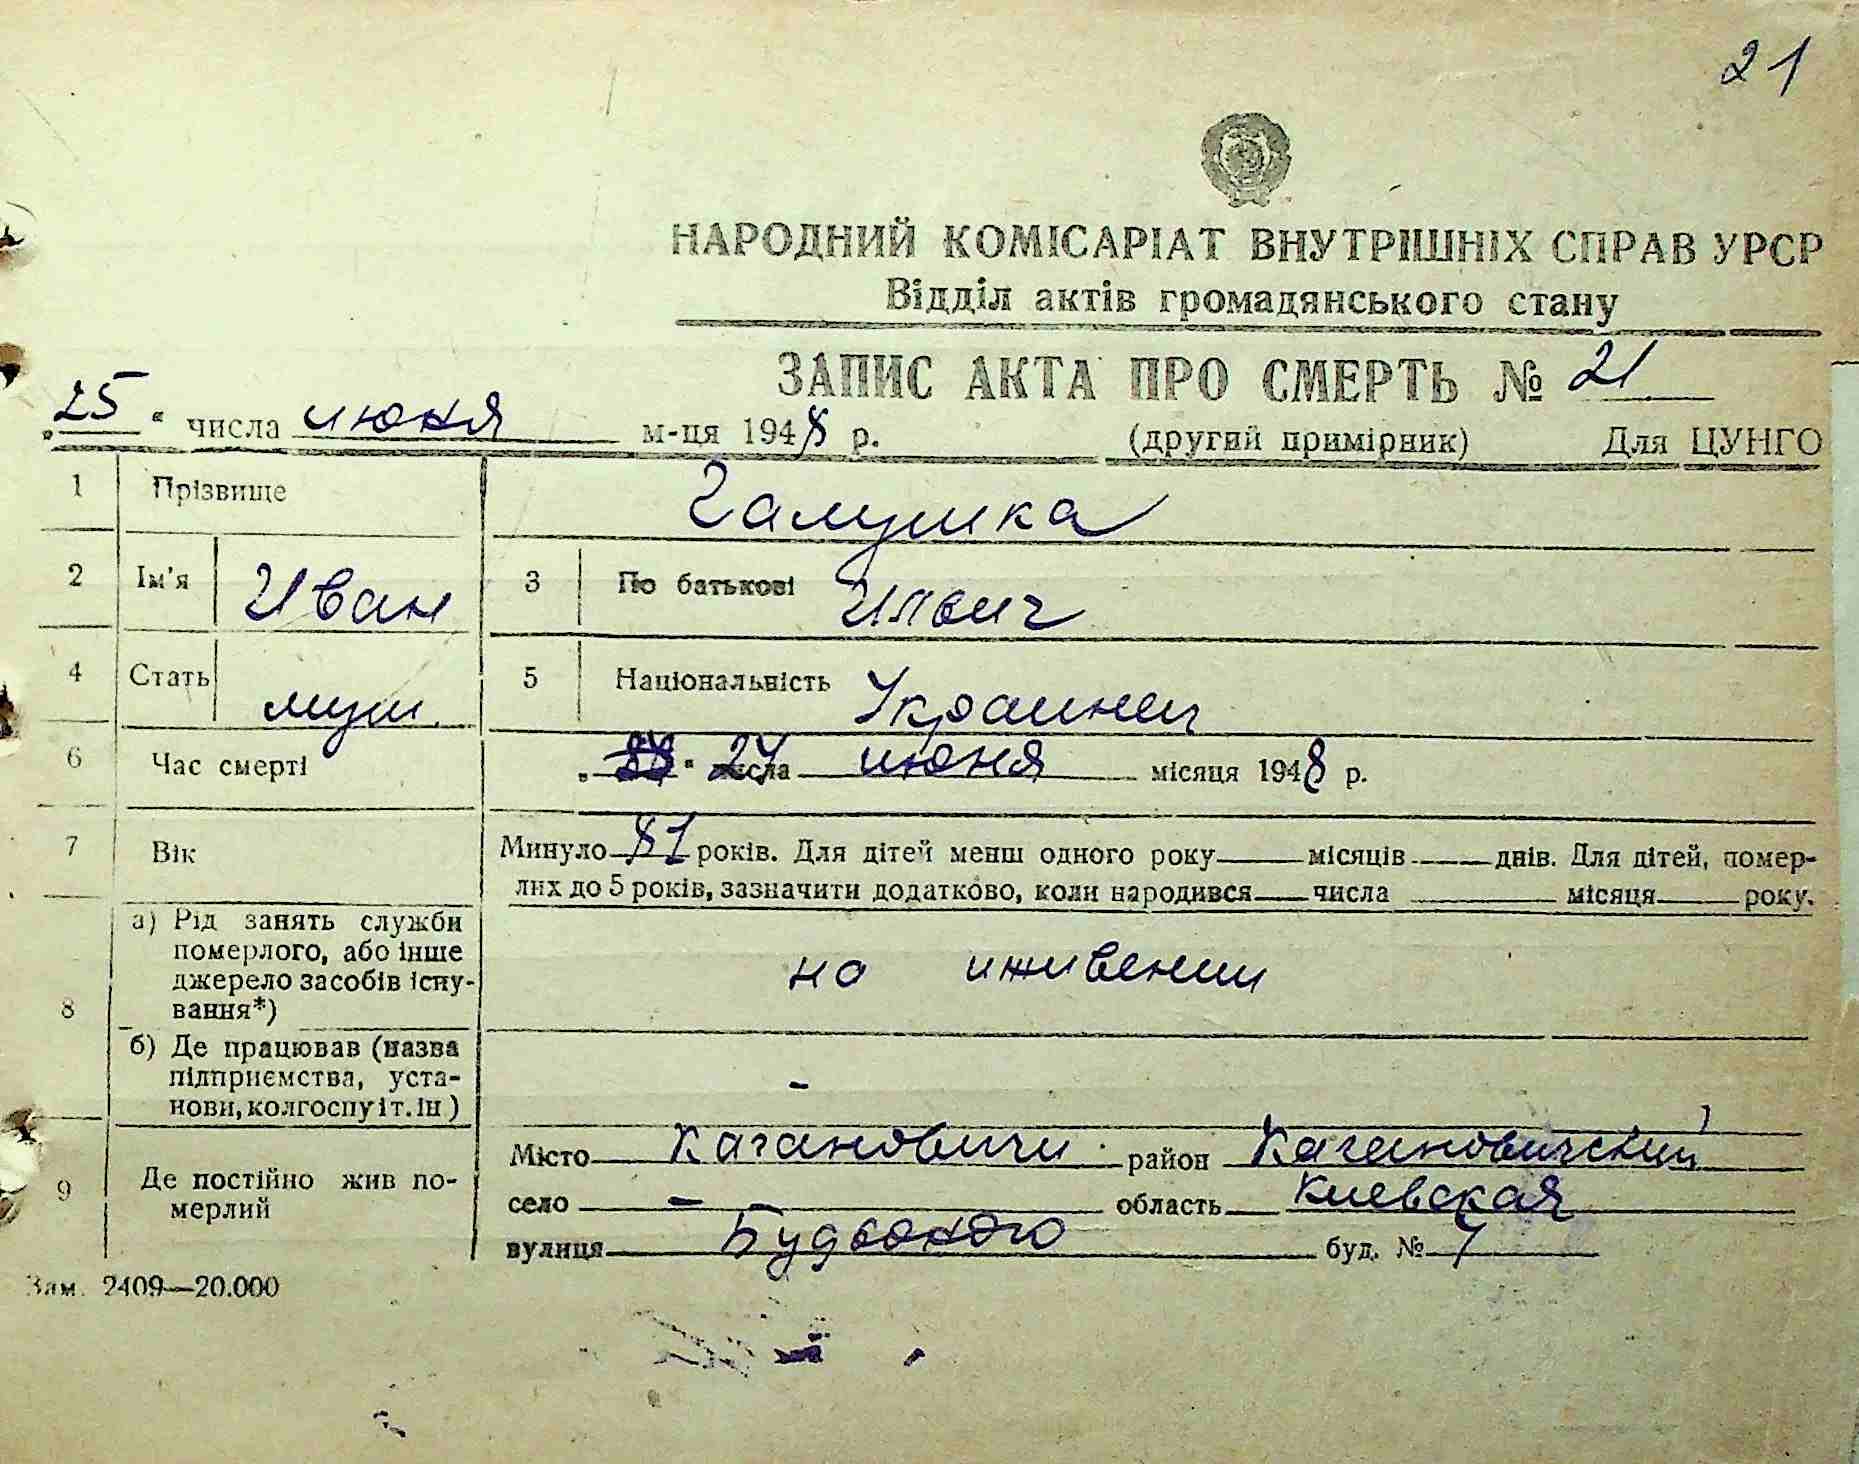 21
НАРОДНИЙ КОМІСАРІАТ ВНУТРІШНІХ СПРАВ УРСР
Відділ актів громадянського стану
ЗАПИС АКТА ПРО СМЕРТЬ № 21
„25“ числа июня м-ця 1948 р. (другий примірник) Для ЦУНГО
1 Прізвище Галушка
2 Ім'я Иван 3 По батькові Ильич
4 Стать муж. 5 Національність Украинец
6 Час смерті „ “ 24 числа июня місяця 1948 р.
7 Вік Минуло 81 років. Для дітей менш одного року місяців днів. Для дітей, помер-
лих до 5 років, зазначити додатково, коли народився числа місяця року.
8 а) Рід занять служби
померлого, або інше
джерело засобів існу-
вання*) на иживении
б) Де працював (назва
підприємства, уста-
нови, колгоспу і т. ін) -
9 Де постійно жив по-
мерлий
Місто Кагановичи район Кагановичский
село - область Киевская
вулиця Будьоного буд. № 7
Зам. 2409—20.000